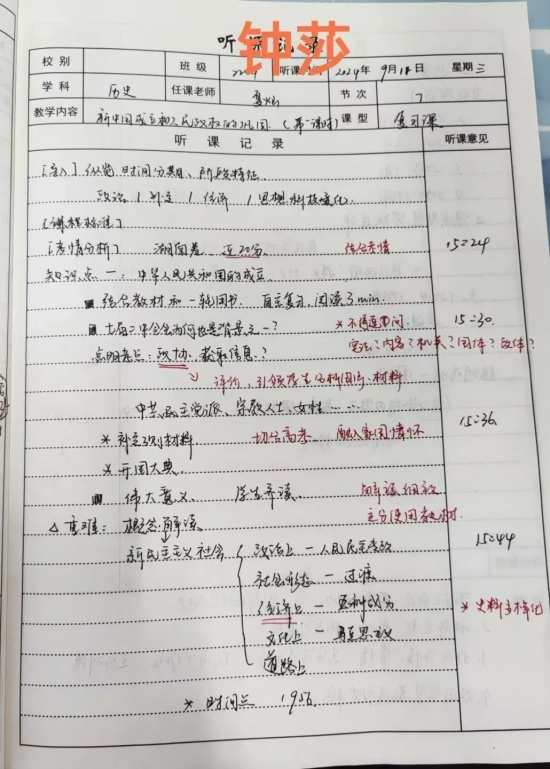 听课记录
钟莎
校别 班级 听课 2024年9月11日 星期三
学科 历史 任课老师 节次 7
教学内容 新中国成立和人民政权的巩固(第一课时) 课型 复习课
听课记录 听课意见
[导入] 纵览时间分期、阶段特征
政治 1 外交 1 经济 1 思想科技文化
[课程标准]
[考情分析] 湖南卷 近20分 结合考情 15:24
知识点一:中华人民共和国的成立
结合教材和一轮用书 自主复习,阅读3min
七届二中全会为何也是背景之一? *不停追问 15:30
点明考点:政协 获取信息? 宪法?内容?机关?国体?政体?
评价,引领学生分析图片、材料
中共、民主党派、宗教人士、女性…… 15:36
*补充2则材料 切合高考 融入家国情怀
*开国大典
伟大意义 学生齐读
△重难: 概念解读 充分使用教材
新民主主义社会 政治上—人民民主专政 15:44
社会形态—过渡
经济上—五种成分 *史料多样化
文化上—马克思主义
道路上
*时间上 1956